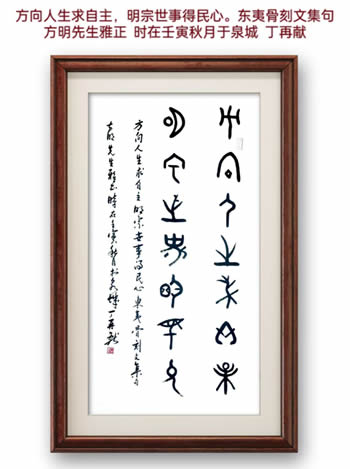 方向人生求自主,明宗世事得民心。东夷骨刻文集句
方明先生雅正 时在壬寅秋月于泉城 丁再献
方向人生求自主
明宗世事得民心
方向人生求自主明宗世事得民心東夷骨刻文集句
方明先生雅正時在壬寅秋月於泉城丁再献